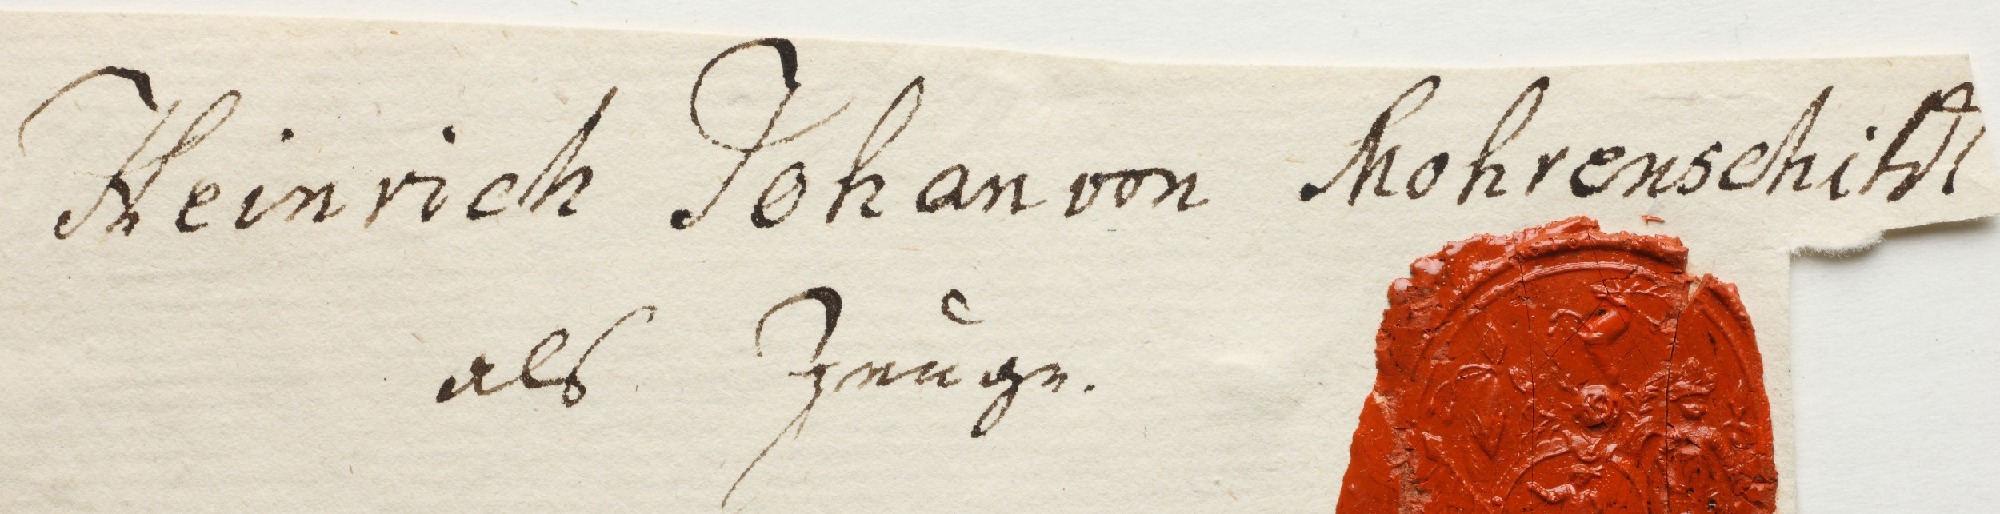 Heinrich Johan von Mohrenschildt
als Zeuge.